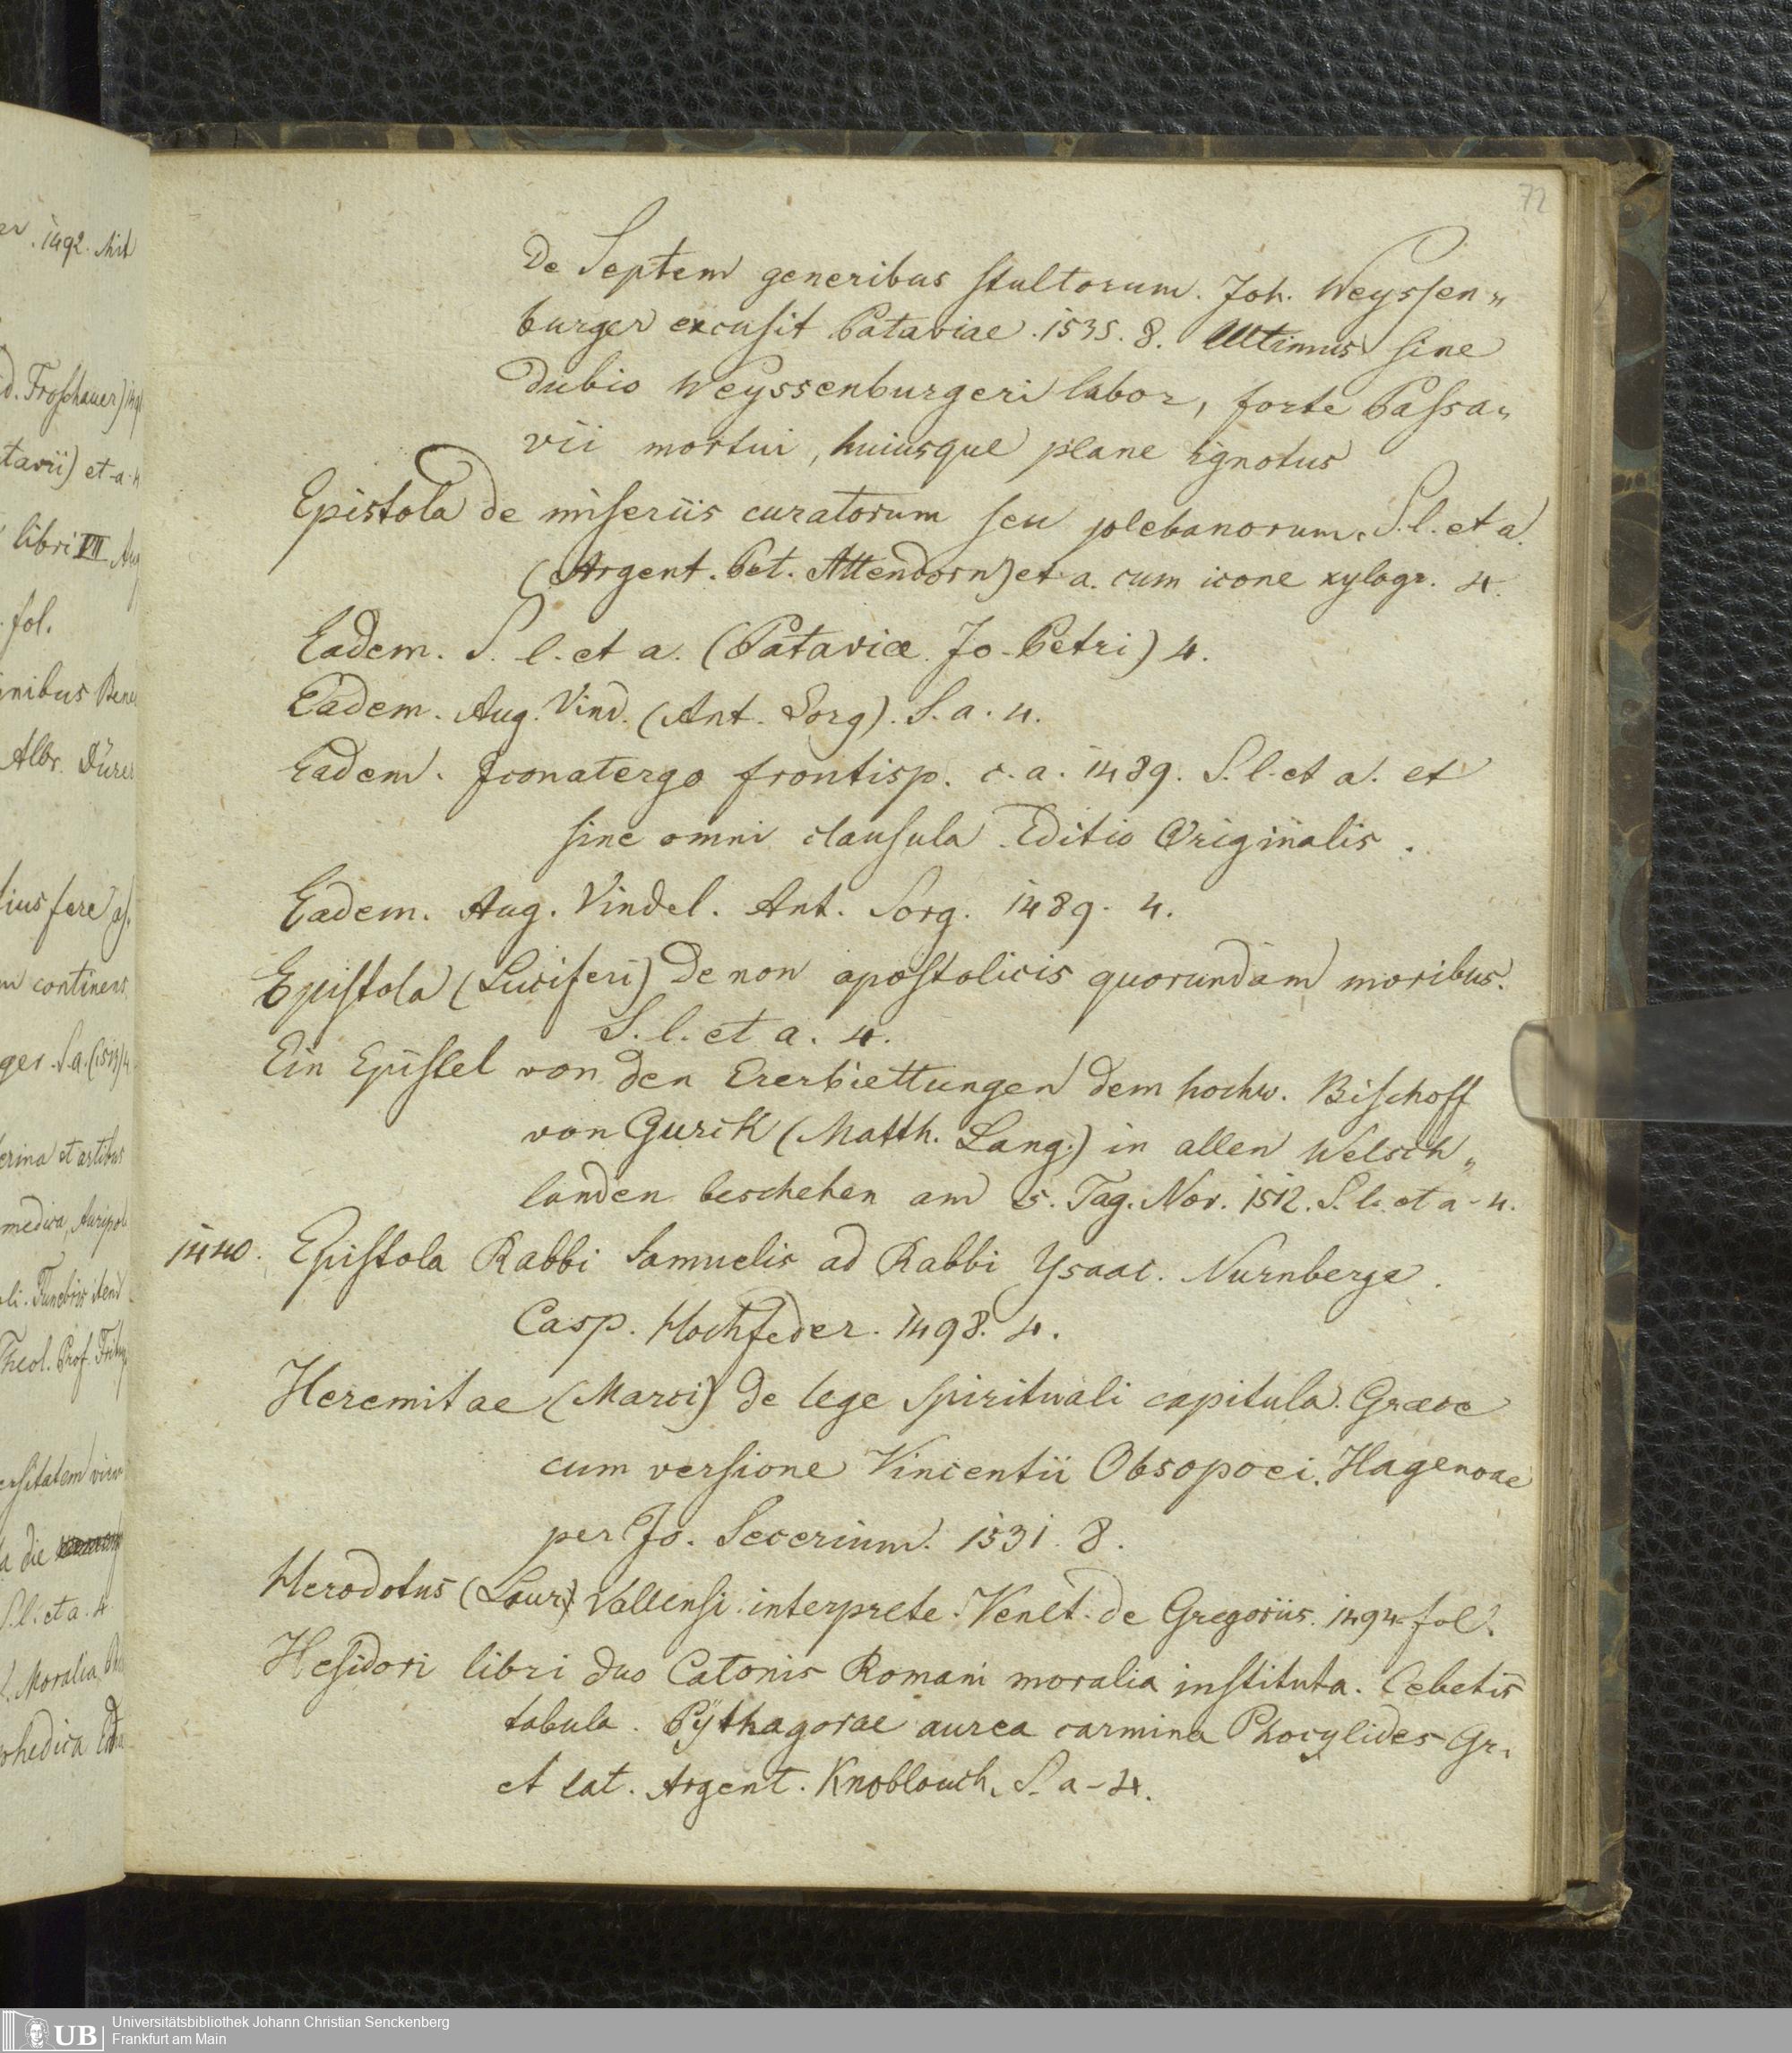 72
De Septem generibus stultorum. Joh. Weyssen„
burger excusit Pataviae. 1535. 8. Ultimus sine
dubio Weyssenburgeri labor, forte Passa„
vii mortui, huiusque plane ignotus
Epistola de miseriis curatorum seu plebanorum. S. l. et a.
(Argent. Pet. Attendorn) et a. cum icone xylogr. 4.
Eadem. S. l. et a. (Pataviæ. Jo. Petri) 4.
Eadem. Aug. Vind. (Ant. Sorg). S. a. 4.
Eadem. Jconatergo frontisp. c. a. 1489. S. l. et a. et
sine omni clausula. Editio Originalis.
Eadem. Aug. Vindel. Ant. Sorg. 1489. 4.
Epistola (Luciferi) de non apostolicis quorundam moribus.
S. l. et a. 4.
Ein Epistel von den Ererbiettungen dem hochw. Bischoff
von Gurck (Matth. Lang.) in allen Welsch„
landen beschehen am 5. Tag. Nov. 1512. S. l. et a - 4.
1440. Epistola Rabbi Samuelis ad Rabbi Ysaac. Nurnberge.
Casp. Hochfeder. 1498. 4.
Heremitae (Marci) de lege spirituali capitula. Græce
cum versione Vincentii Obsopoei. Hagenoae
per Jo. Secerium. 1531. 8.
Herodotus (Laur) Vallensi interprete. Venet. de Gregoriis. 1494. fol.
Hesidori libri duo Catonis Romani moralia instituta. Cebetis
tabula. Pÿthagorae aurea carmina Phocylides Gr.
et lat. Argent. Knoblouch. S. a - 4.
1492. Mit
libri VII
fol.
Albr. Dürer
continens
medica,
S. l. et a. 4.
Moralia
UB
Universitätsbibliothek Johann Christian Senckenberg
Frankfurt am Main